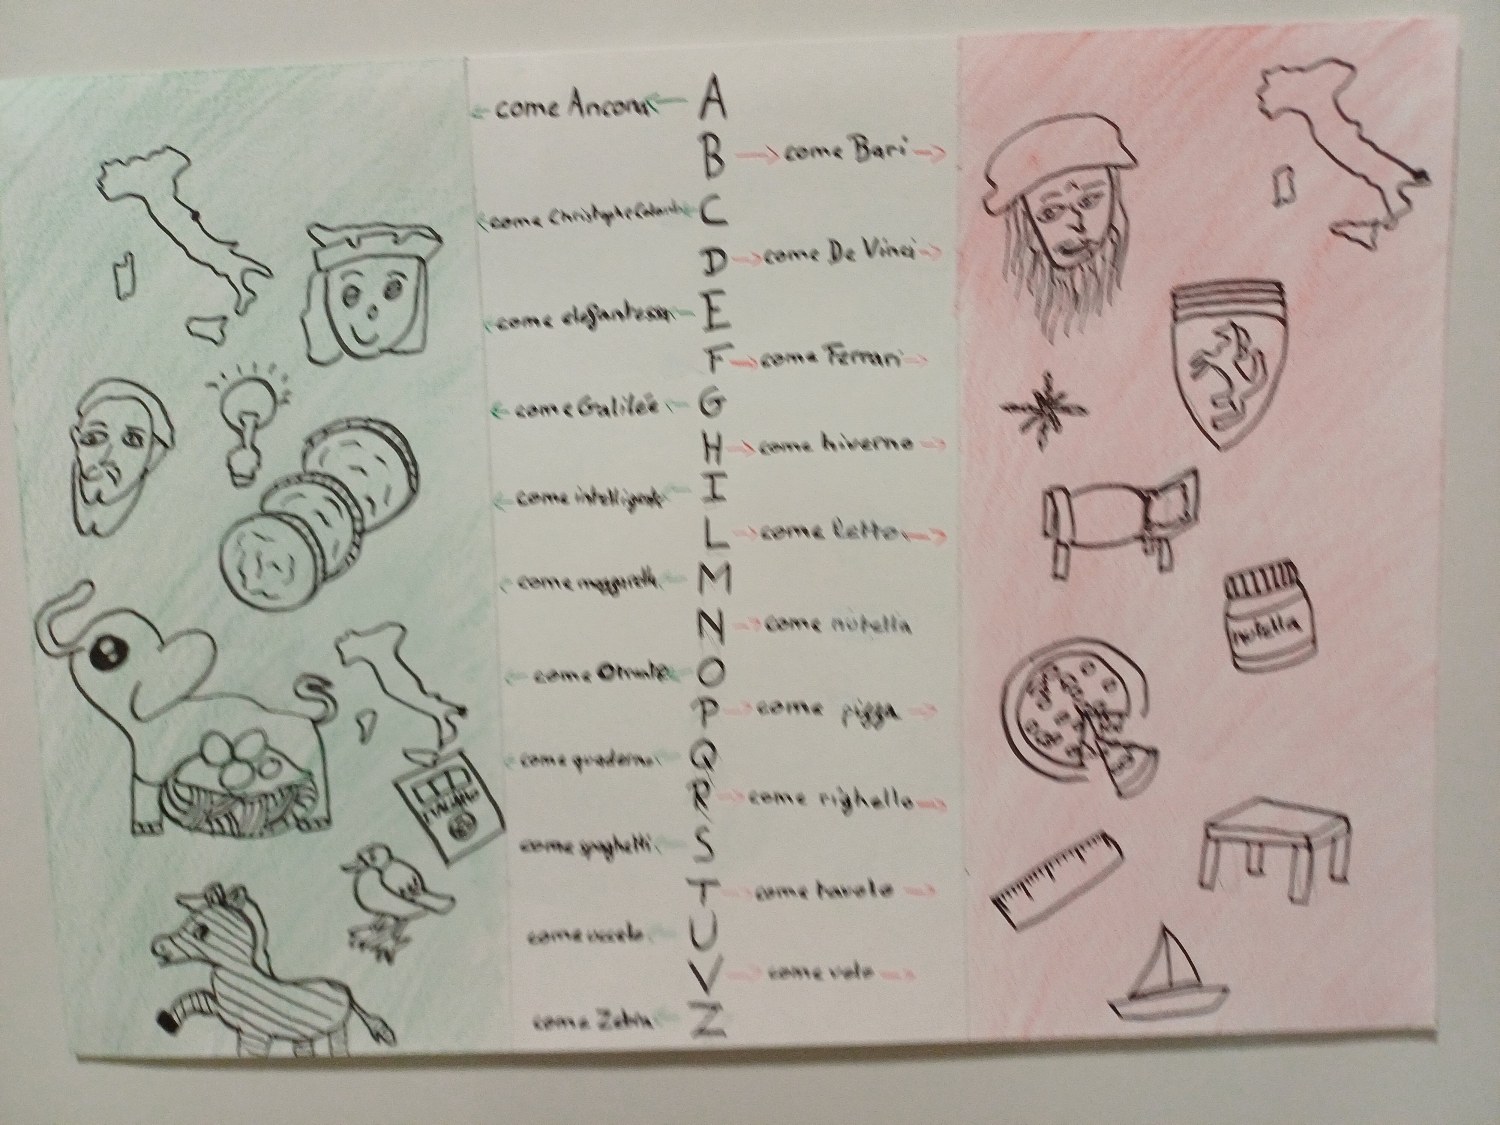 come Ancona A
B come Bari
come Christophe Colomb C
D come De Vinci
come elefantessa E
F come Ferrari
come Galilée G
H come hiverno
come intelligente I
L come letto
come mozzarella M
N come nutella
come Otranto O
P come pizza
come quaderno Q
R come righello
come spaghetti S
T come tavolo
come uccelo U
V come vela
come Zebra Z
nutella
ITALIANO